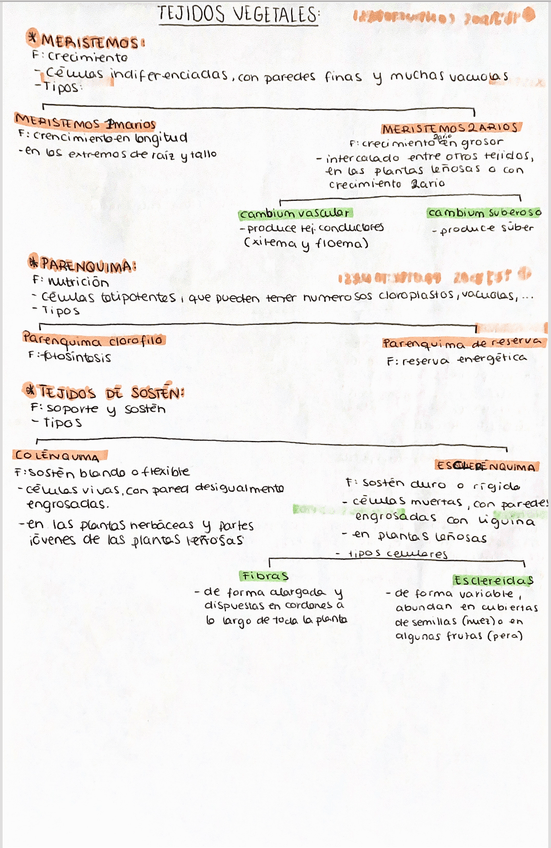 TEJIDOS VEGETALES:
* MERISTEMOS:
F: crecimiento
- Células indiferenciadas, con paredes finas y muchas vacuolas
- Tipos:
MERISTEMOS 1marios
F: crencimiento en longitud
- en los extremos de raíz y tallo
MERISTEMOS 2ARIOS
F: crecimiento 2ario en grosor
- intercalado entre otros tejidos,
en las plantas leñosas o con
crecimiento 2ario
cambium vascular
- produce tej. conductores
(xilema y floema)
cambium suberoso
- produce súber
* PARENQUIMA:
F: nutrición
- células totipotentes, que pueden tener numerosos cloroplastos, vacuolas, ...
- Tipos
Parenquima clorofilo
F: fotosíntesis
Parenquima de reserva
F: reserva energética
* TEJIDOS DE SOSTÉN:
F: soporte y sostén
- Tipos
COLÉNQUIMA
F: sostén blando o flexible
- células vivas, con pared desigualmente
engrosadas.
- en las plantas herbáceas y partes
jóvenes de las plantas leñosas
ESCLERÉNQUIMA
F: sostén duro o rígido
- células muertas, con paredes
engrosadas con liguina
- en plantas leñosas
- tipos celulares
Fibras
- de forma alargada y
dispuestas en cordones a
lo largo de toda la planta
Esclereidas
- de forma variable,
abundan en cubiertas
de semillas (nuez) o en
algunas frutas (pera)